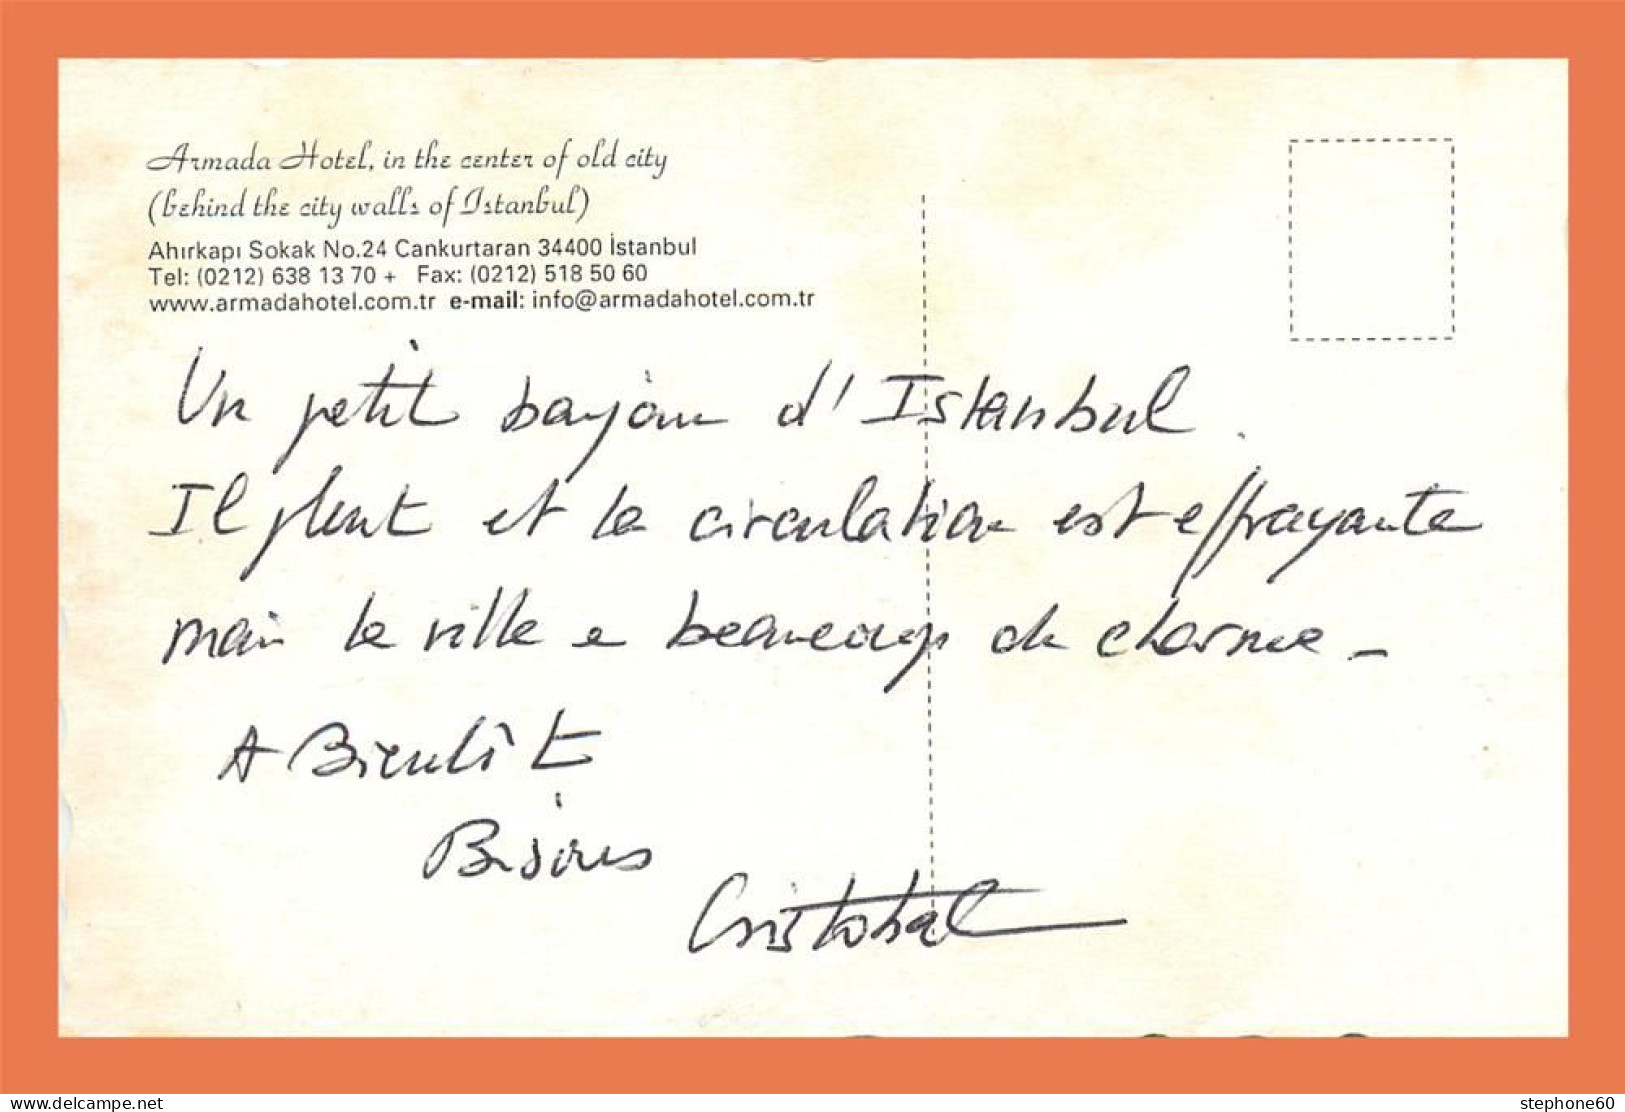 Armada Hotel, in the center of old city
(behind the city walls of Istanbul)
Ahırkapı Sokak No.24 Cankurtaran 34400 İstanbul
Tel: (0212) 638 13 70 + Fax: (0212) 518 50 60
www.armadahotel.com.tr e-mail: info@armadahotel.com.tr
Un petit bonjour d'Istanbul.
Il pleut et la circulation est effrayante
mais la ville a beaucoup de charme -
A Bientôt
Bisous
Cristobal
delcampe.net
stephone60